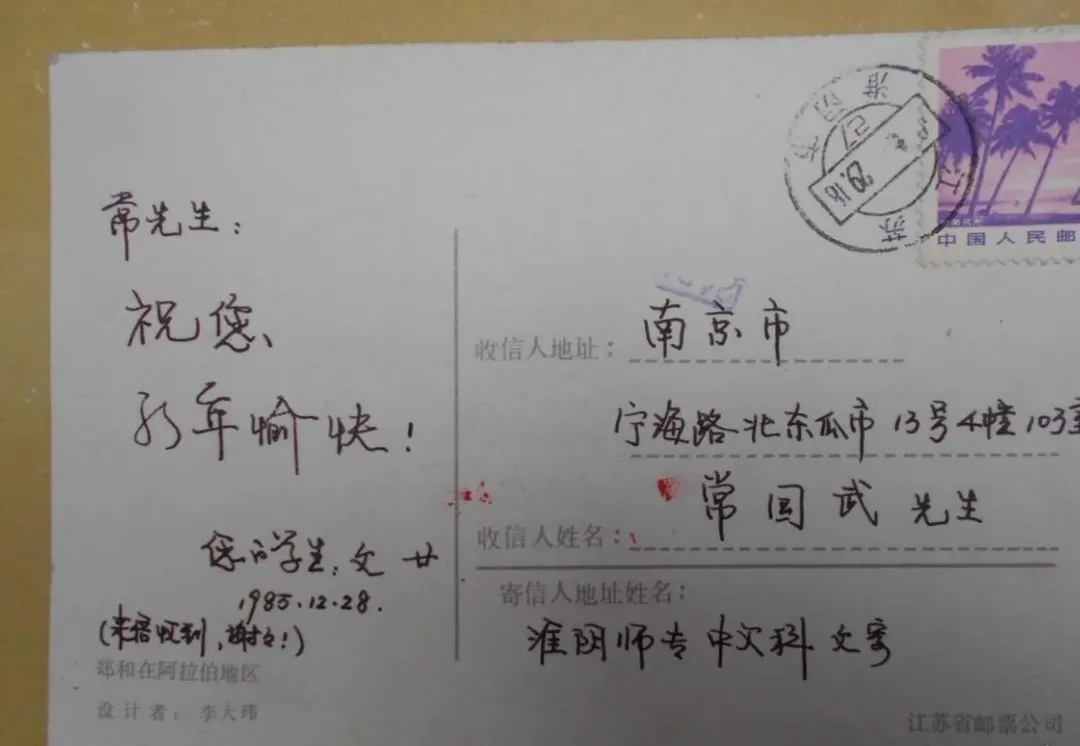 常先生：
祝您
新年愉快！
您的学生：文廿
1985.12.28.
(来信收到，谢谢！)
郑和在阿拉伯地区
设计者：李大玮
江苏
淮阴
中国人民邮
收信人地址：南京市
宁海路北东瓜市13号4幢103室
收信人姓名：常国武先生
寄信人地址姓名：
淮阴师专中文科文寄
江苏省邮票公司